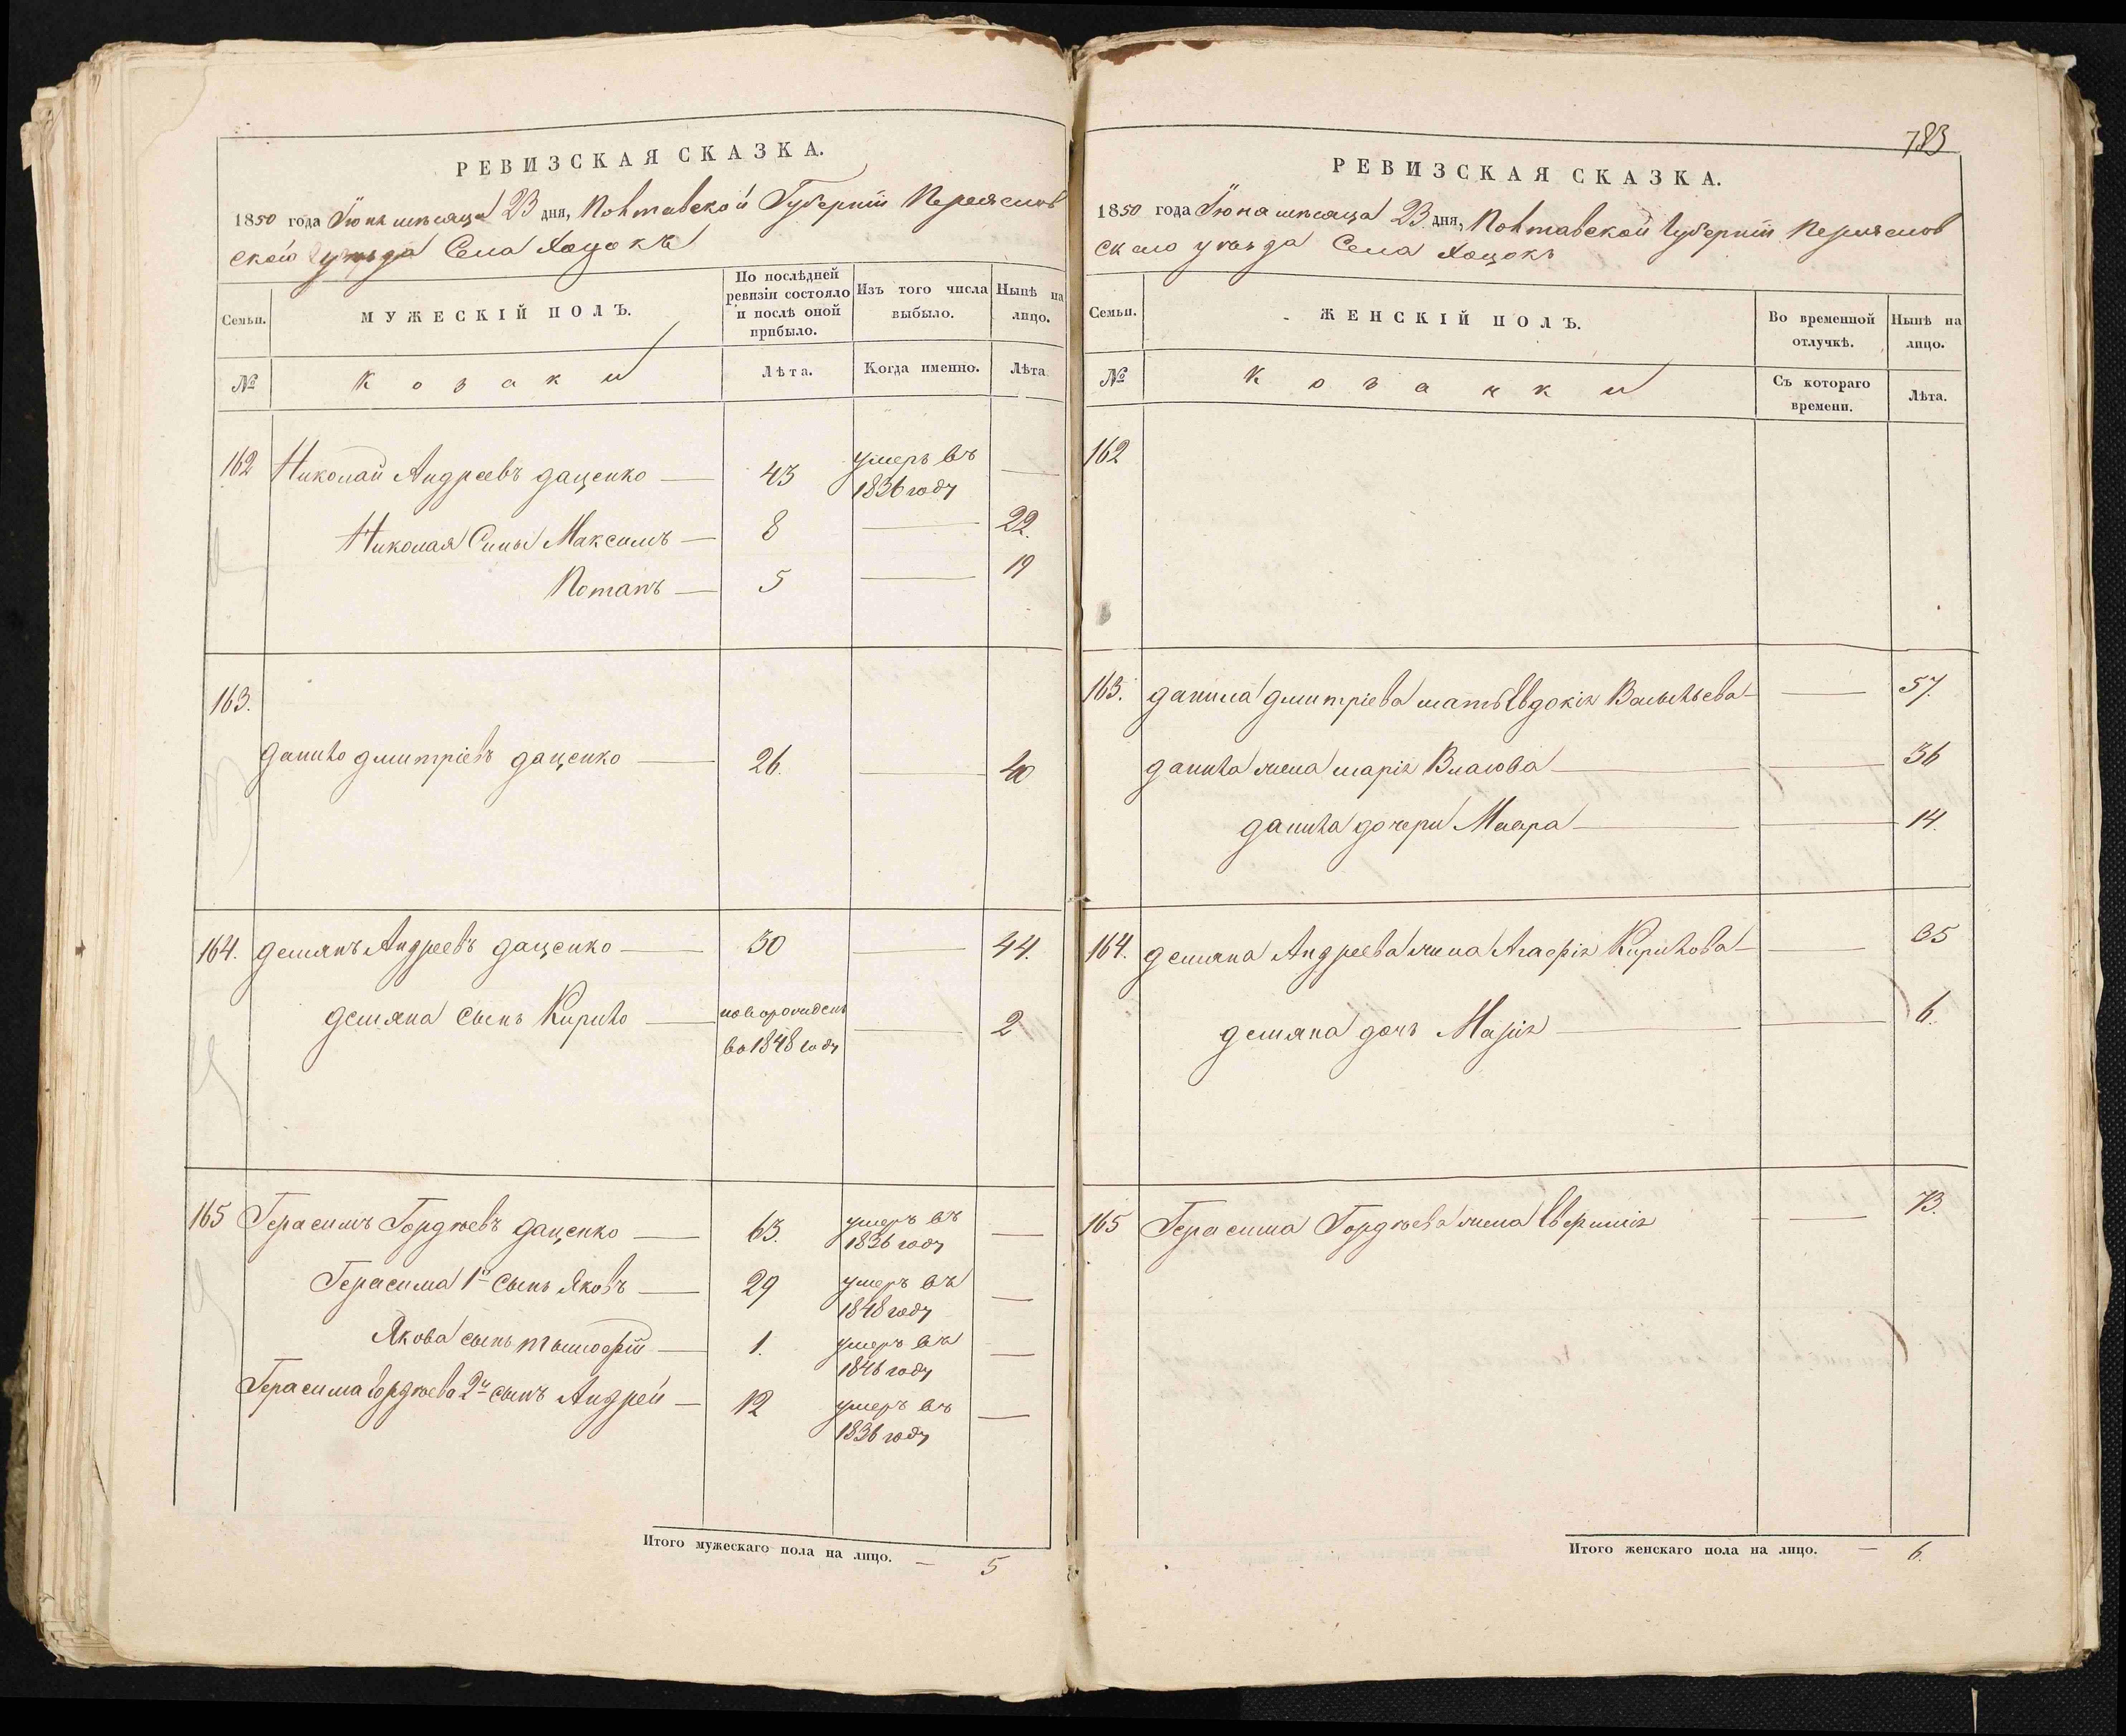 РЕВИЗСКАЯ СКАЗКА.
1850 года Іюня мѣсяца 23 дня, Полтавской Губерніи Переяслов
ского уѣзда Села Хоцокъ
Семьи. МУЖЕСКІЙ ПОЛЪ. По послѣдней ревизіи состояло и послѣ оной прибыло. Изъ того числа выбыло. Нынѣ на лицо.
№ Козаки Лѣта. Когда именно. Лѣта
162 Николай Андреевъ Даценко — 43 умеръ въ 1836 году —
Николая Сыны Максимъ — 8 — 22.
Потапъ — 5 — 19
163.
Данило Дмитріевъ Даценко — 26. — 40
164. Демянъ Андреевъ Даценко — 30 — 44.
Демяна сынъ Кирило — новорожденъ во 1848 году — 2
165 Герасимъ Гордѣевъ Даценко — 63. умеръ въ 1836 году —
Герасима 1й сынъ Яковъ — 29 умеръ въ 1848 году —
Якова сынъ Тимофій — 1. умеръ въ 1846 году —
Герасима Гордѣева 2й сынъ Андрей — 12 умеръ въ 1836 году —
Итого мужескаго пола на лицо. — 5
783
РЕВИЗСКАЯ СКАЗКА.
1850 года Іюня мѣсяца 23 дня, Полтавской Губерніи Переяслов
скаго уѣзда Села Хоцокъ
Семьи. ЖЕНСКІЙ ПОЛЪ. Во временной отлучкѣ. Нынѣ на лицо.
№ Козачки Съ котораго времени. Лѣта.
162
163. Данила Дмитріева мать Евдокія Васильева — — 57.
Данила жена Марія Власова — — 36
Данила дочери Мавра — — 14.
164. Демяна Андреева жена Агафія Кирилова — — 35
Демяна дочь Марія — — 6.
165 Герасима Гордѣева жена — 73.
Итого женскаго пола на лицо. — 6.